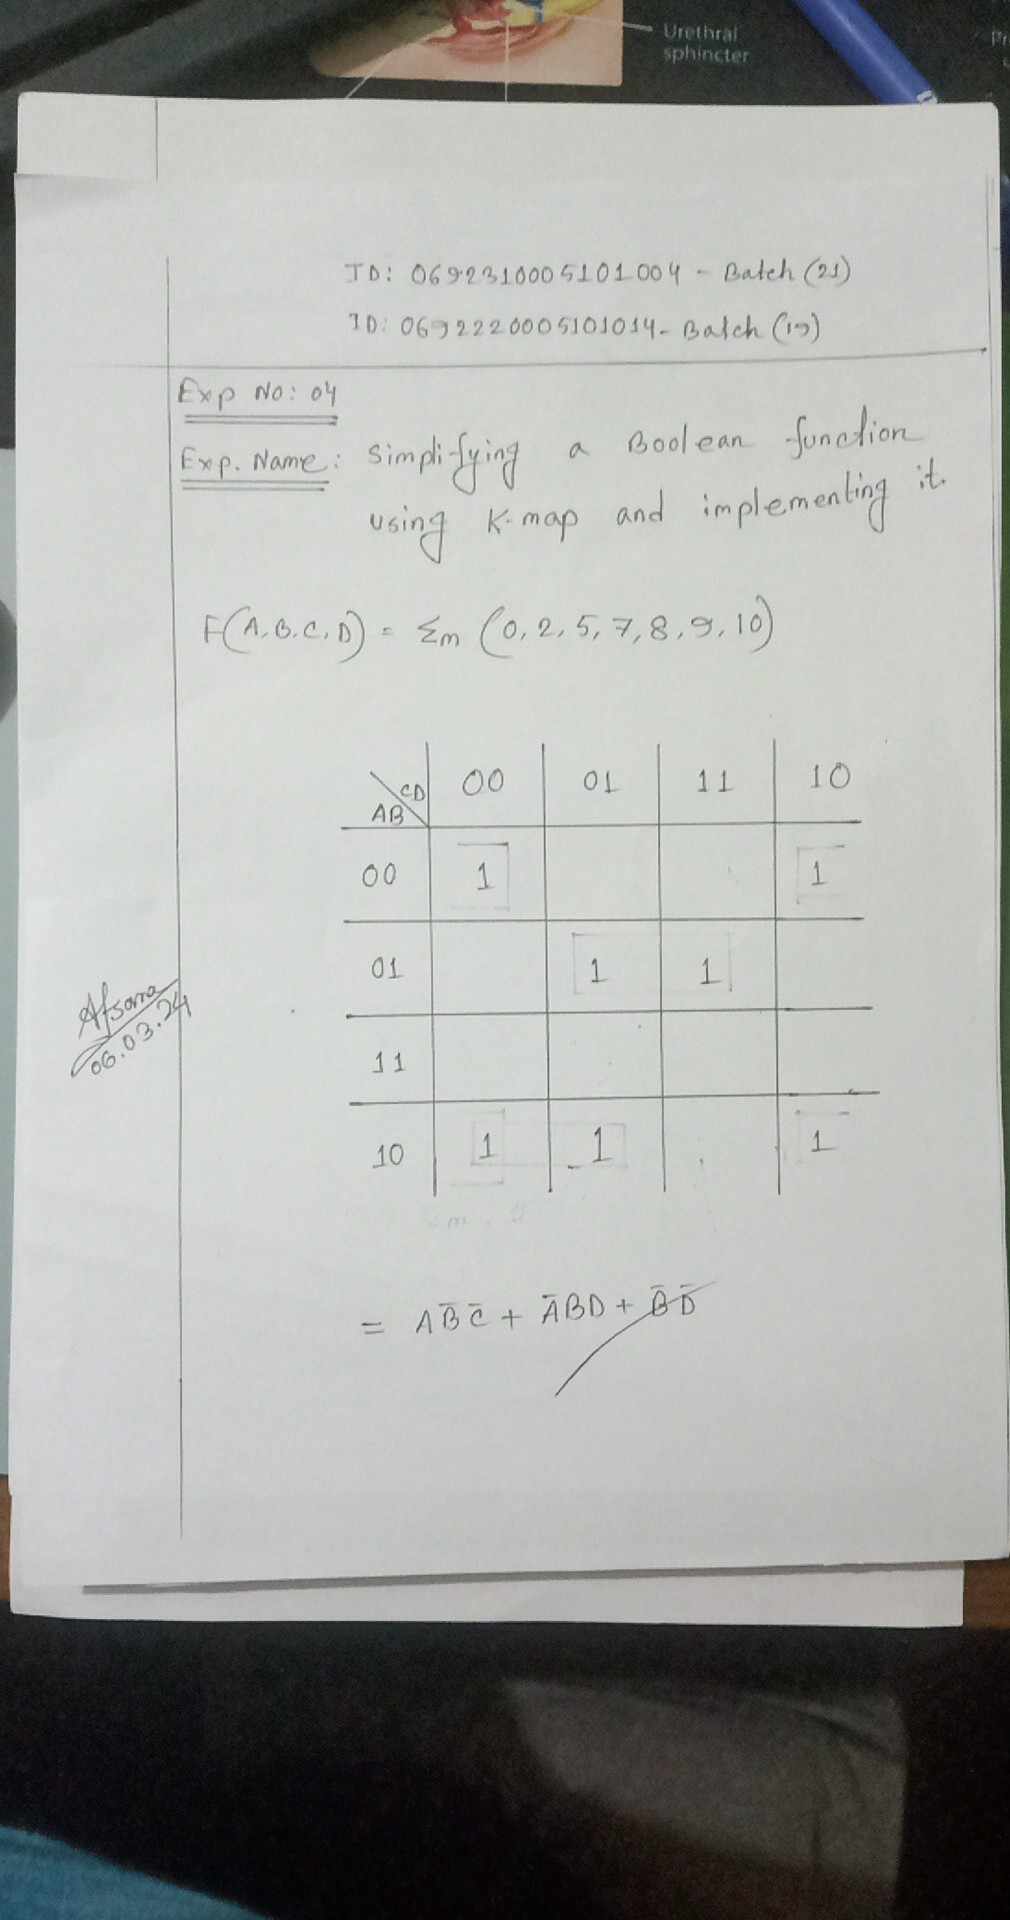 Urethral
sphincter
ID: 0692310005101004 - Batch (21)
ID: 0692220005101014 - Batch (19)
Exp No: 04
Exp. Name: Simplifying a Boolean function
using K-map and implementing it.
F(A.B.C.D) = Σm (0, 2, 5, 7, 8, 9, 10)
CD 00 01 11 10
AB
00 1 1
01 1 1
11
10 1 1 1
Afsana
06.03.24
= AB̅C̅ + A̅BD + B̅D̅